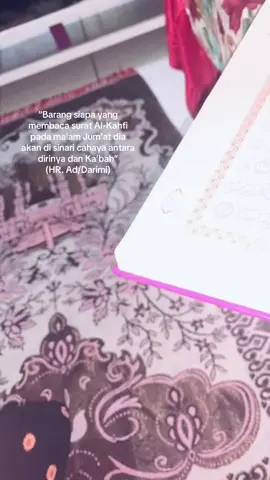 "Barang siapa yang
membaca surat Al-Kahfi
pada malam Jum'at dia
akan di sinari cahaya antara
dirinya dan Ka'bah"
(HR. Ad/Darimi)